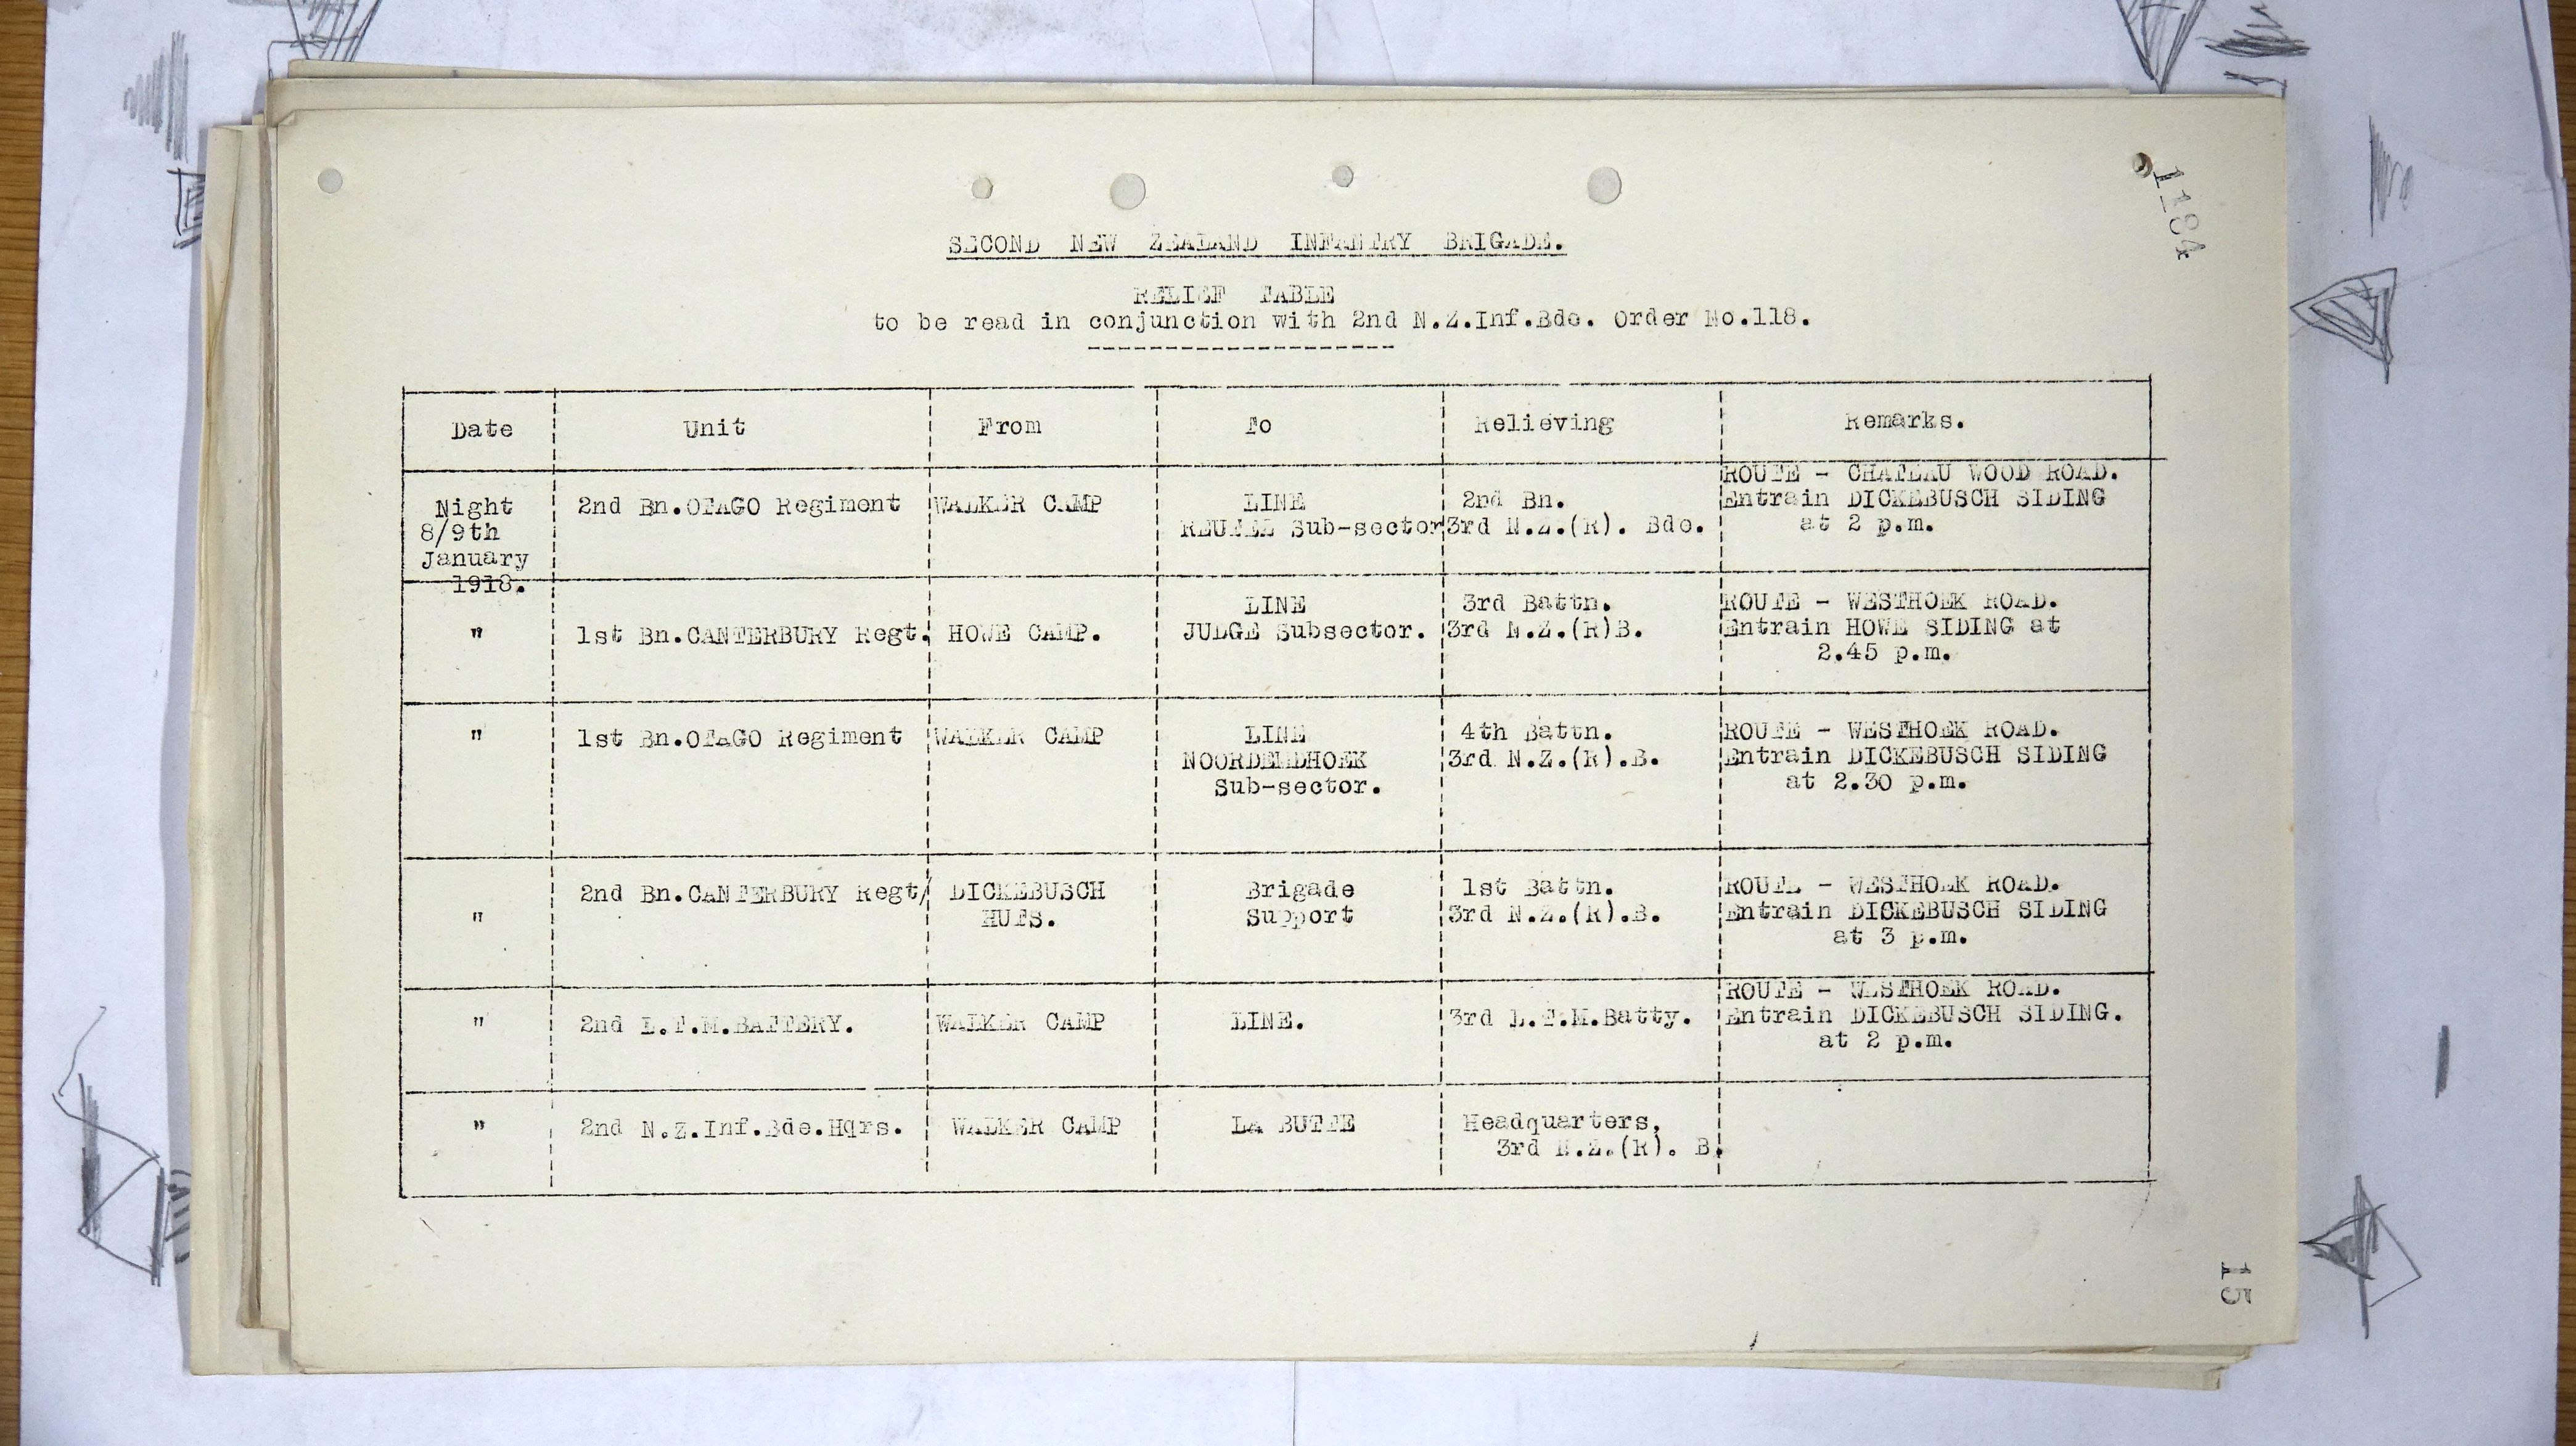 1184
SECOND NEW ZEALAND INFANTRY BRIGADE.
RELIEF TABLE
to be read in conjunction with 2nd N.Z.Inf.Bde. Order No.118.
Date Unit From To Relieving Remarks.
Night
8/9th
January
1918.
2nd Bn.OTAGO Regiment
WALKER CAMP
LINE
REUTEL Sub-sector
2nd Bn.
3rd N.Z.(R). Bde.
ROUTE - CHATEAU WOOD ROAD.
Entrain DICKEBUSCH SIDING
at 2 p.m.
"
1st Bn.CANTERBURY Regt.
HOWE CAMP.
LINE
JUDGE Subsector.
3rd Battn.
3rd N.Z.(R)B.
ROUTE - WESTHOEK ROAD.
Entrain HOWE SIDING at
2.45 p.m.
"
1st Bn.OTAGO Regiment
WALKER CAMP
LINE
NOORDEMDHOEK
Sub-sector.
4th Battn.
3rd N.Z.(R).B.
ROUTE - WESTHOEK ROAD.
Entrain DICKEBUSCH SIDING
at 2.30 p.m.
"
2nd Bn.CANTERBURY Regt/
DICKEBUSCH
HUTS.
Brigade
Support
1st Battn.
3rd N.Z.(R).B.
ROUTE - WESTHOEK ROAD.
Entrain DICKEBUSCH SIDING
at 3 p.m.
"
2nd L.T.M.BATTERY.
WALKER CAMP
LINE.
3rd L.T.M.Batty.
ROUTE - WESTHOEK ROAD.
Entrain DICKEBUSCH SIDING.
at 2 p.m.
"
2nd N.Z.Inf.Bde.Hqrs.
WALKER CAMP
LA BUTTE
Headquarters,
3rd N.Z.(R). B.
15